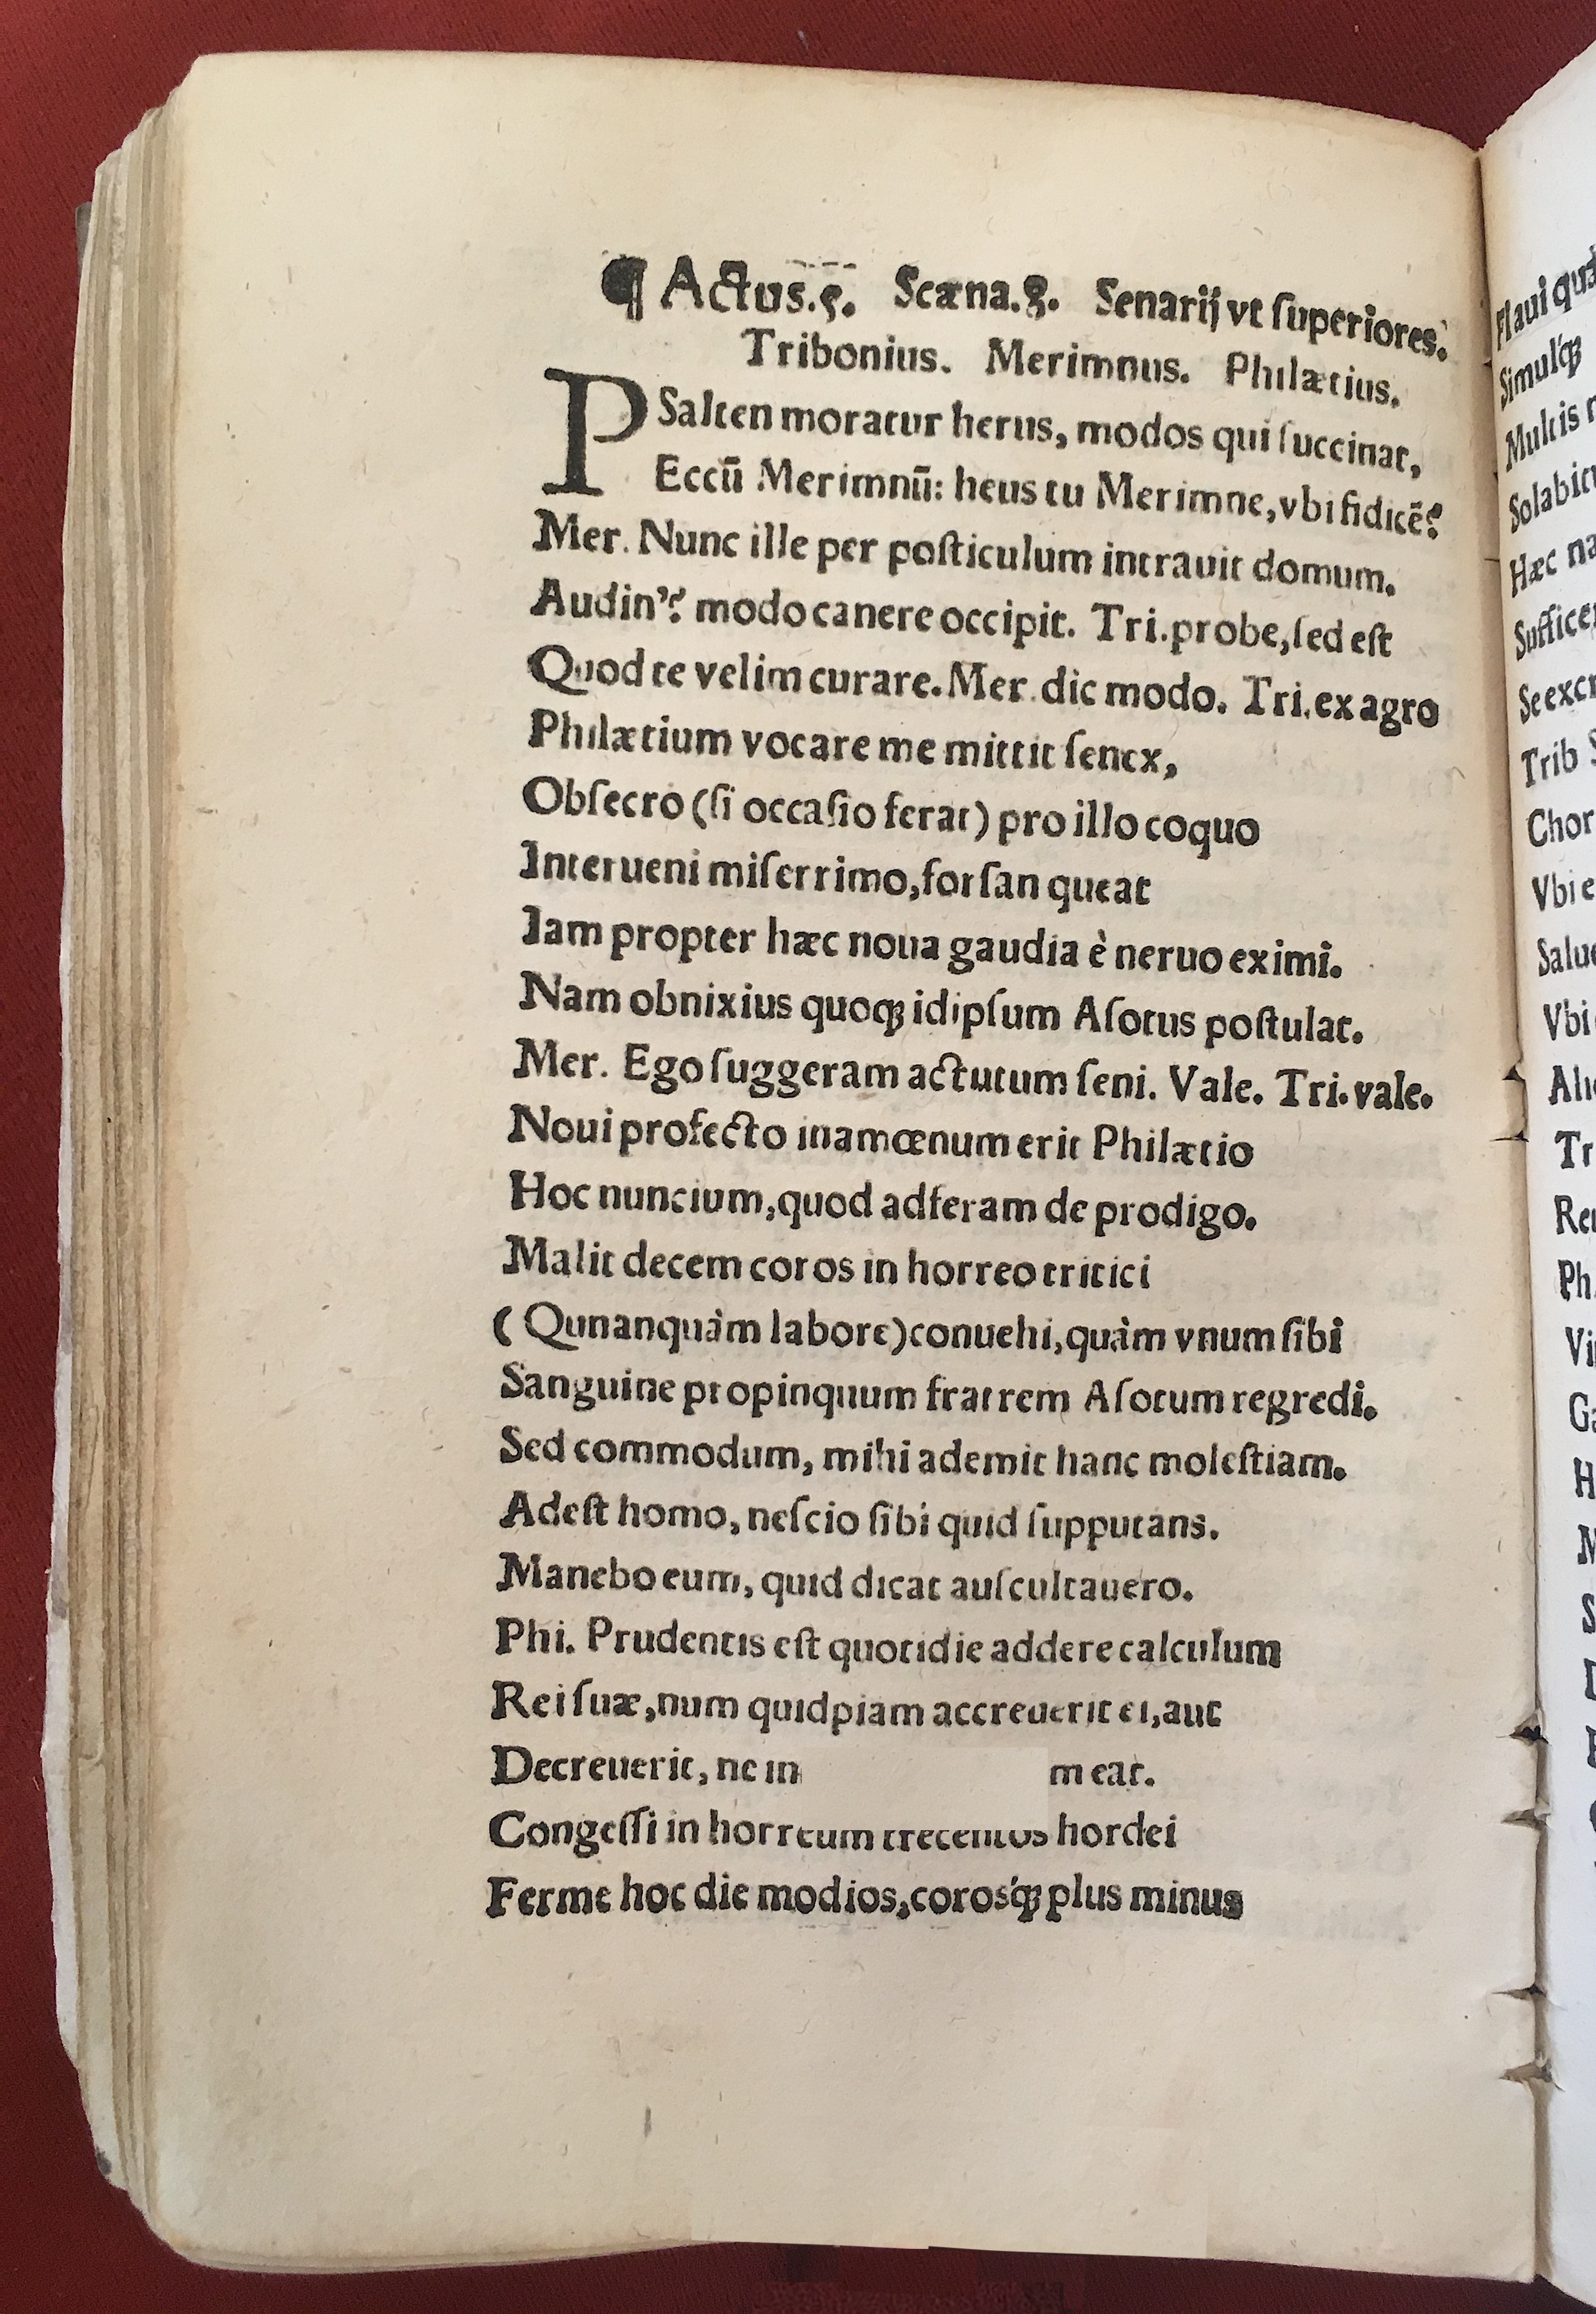 ¶ Actus.ς. Scæna.8. Senarij vt ſuperiores.
Tribonius. Merimnus. Philætius.
PSalten moratur herus, modos qui ſuccinat,
Eccū Merimnū: heus tu Merimne, vbi fidicē?
Mer. Nunc ille per poſticulum intrauit domum.
Audin'? modo canere occipit. Tri. probe, ſed eſt
Quod te velim curare. Mer. dic modo. Tri. ex agro
Philætium vocare me mittit ſenex,
Obſecro (ſi occaſio ferat) pro illo coquo
Interueni miſerrimo, forſan queat
Iam propter hæc noua gaudia è neruo eximi.
Nam obnixius quoqꝫ idipſum Aſotus poſtulat.
Mer. Ego ſuggeram actutum ſeni. Vale. Tri. vale.
Noui profecto inamœnum erit Philætio
Hoc nuncium, quod adferam de prodigo.
Malit decem coros in horreo tritici
(Qunanquàm labore) conuehi, quàm vnum ſibi
Sanguine propinquum fratrem Aſotum regredi.
Sed commodum, mihi ademit hanc moleſtiam.
Adeſt homo, neſcio ſibi quid ſupputans.
Manebo eum, quid dicat auſcultauero.
Phi. Prudentis eſt quotidie addere calculum
Rei ſuæ, num quidpiam accreuerit ei, aut
Decreuerit, ne in m eat.
Congeſſi in horreum trecentos hordei
Ferme hoc die modios, corosq́ꝫ plus minus
Flaui
Simulq́ꝫ
Multis
Hæc
Trib
Vbi
Tr